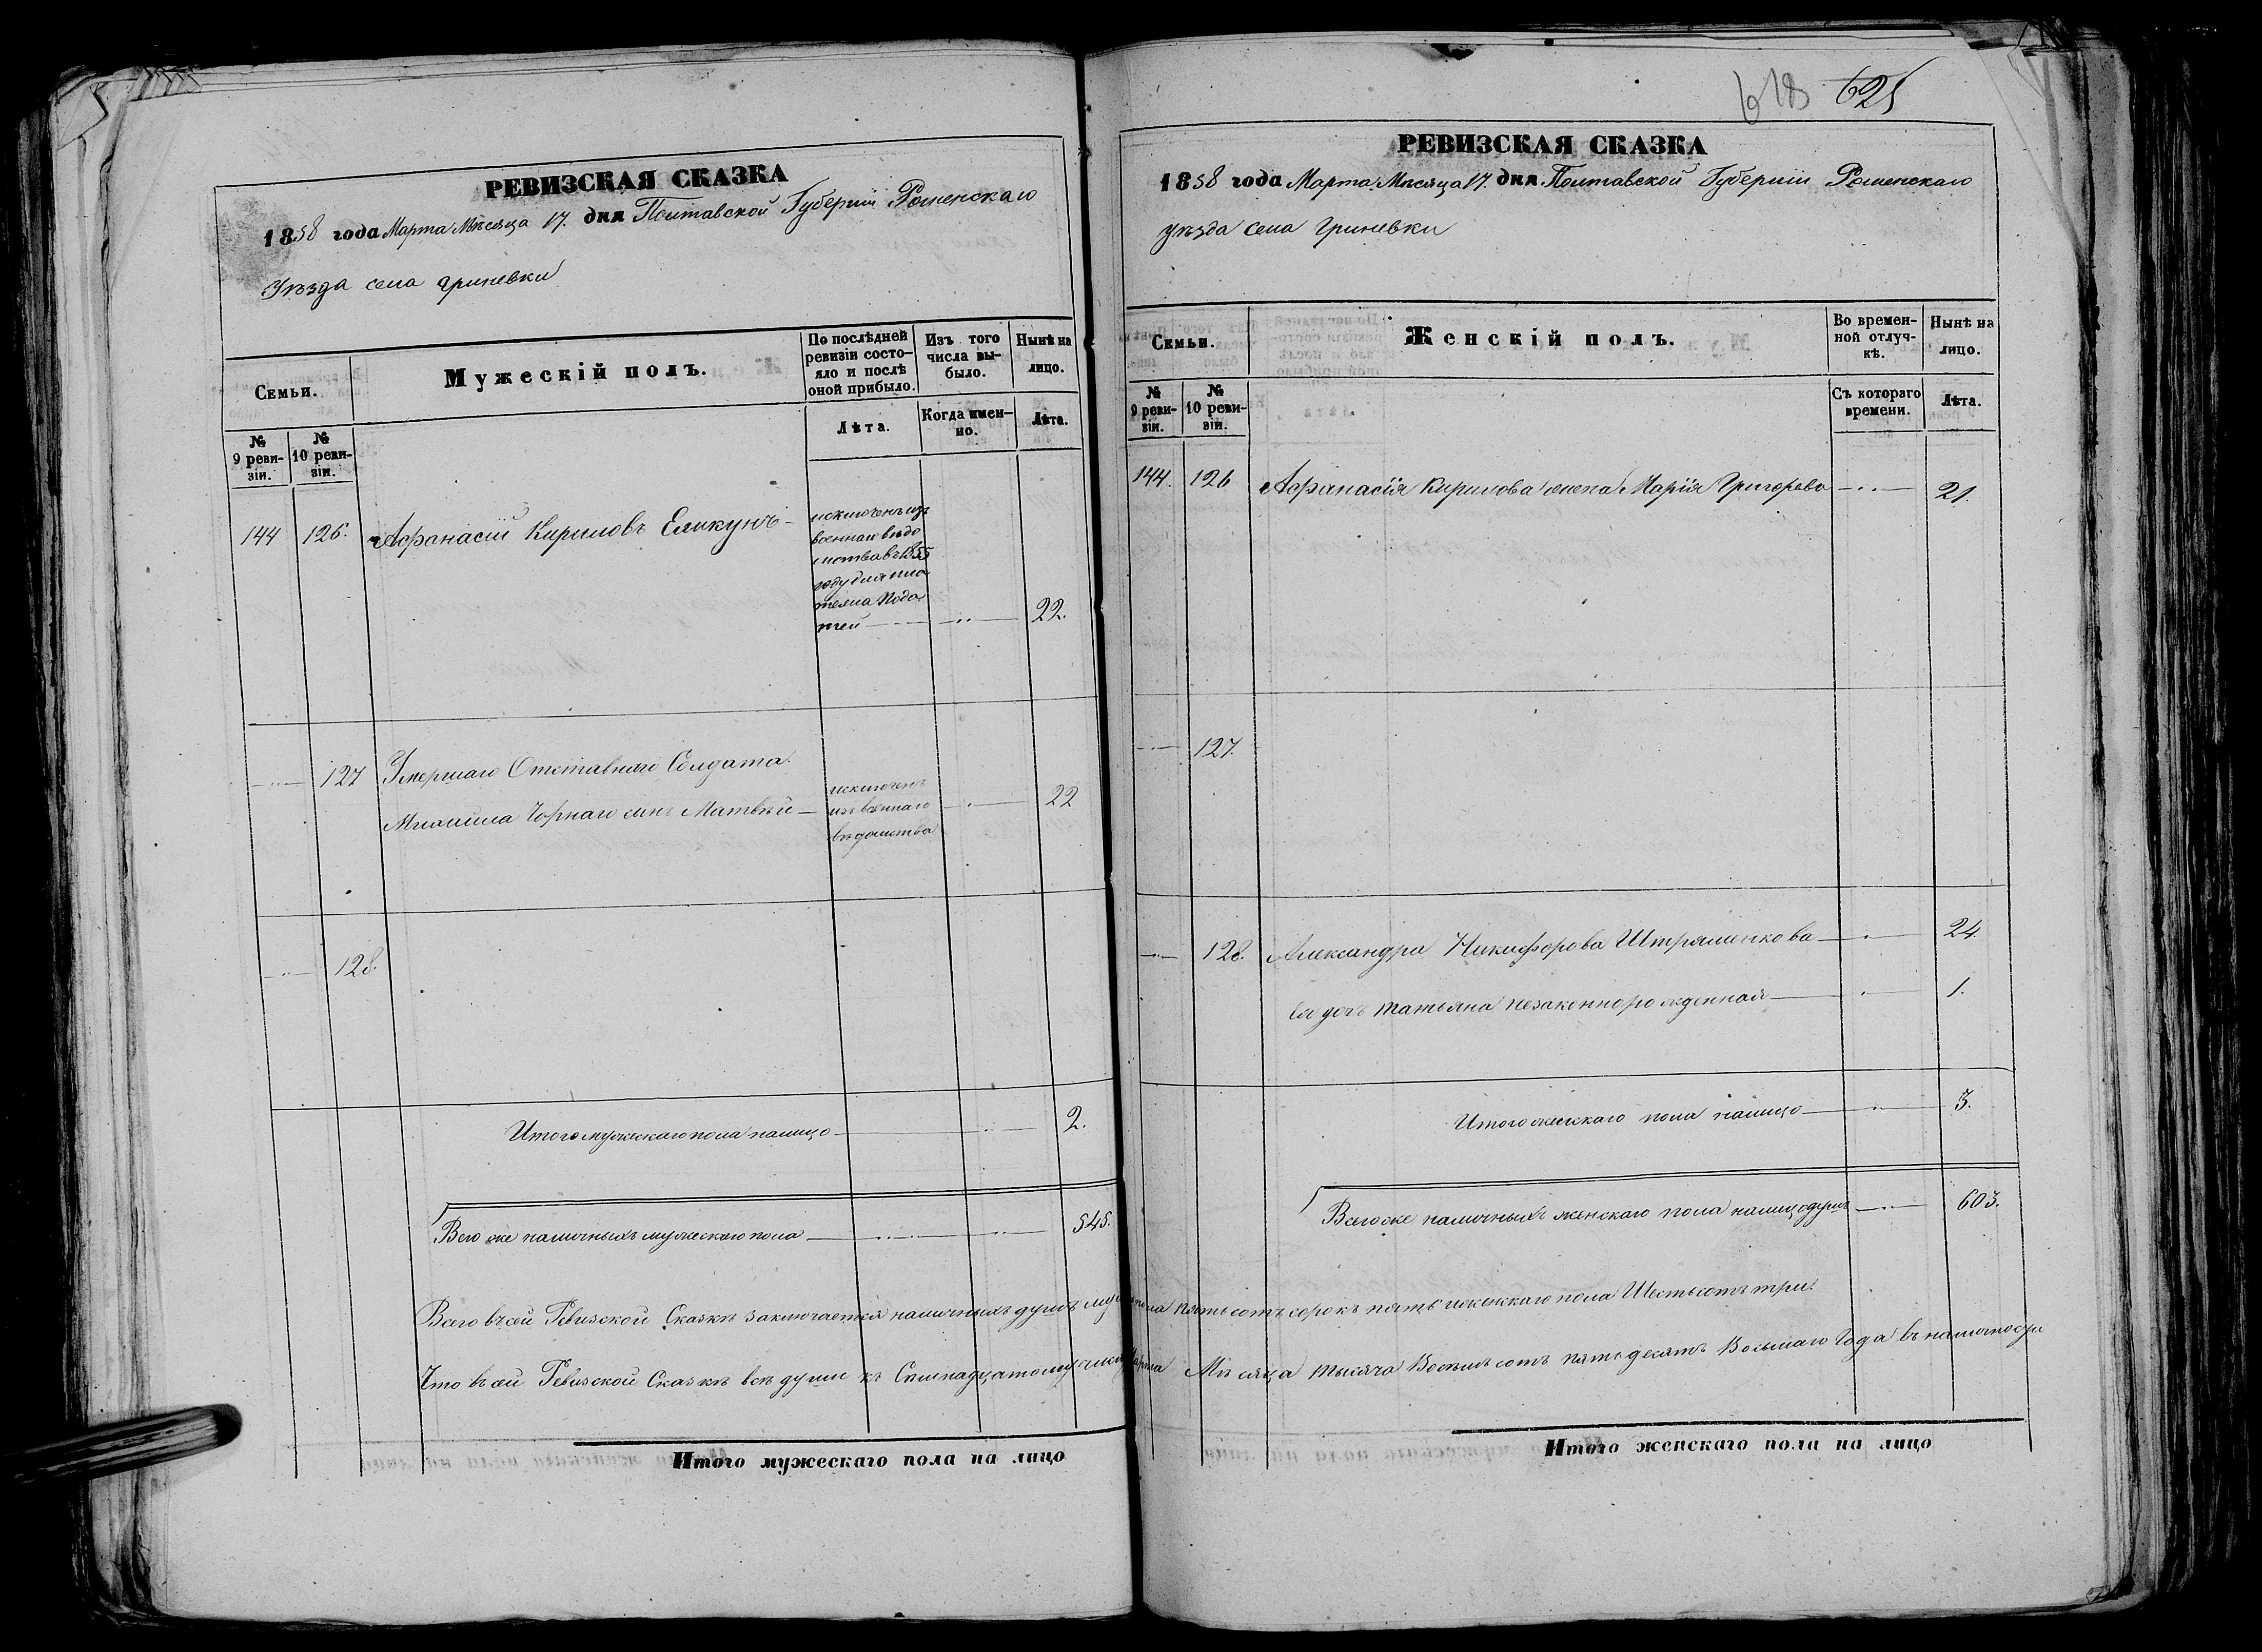 РЕВИЗСКАЯ СКАЗКА
1858 года Марта Мѣсяца 17. дня Полтавской Губерніи Роменскаго
Уѣзда села Гриневки
Семьи.
Мужескій полъ.
По послѣдней ревизіи состояло и послѣ оной прибыло.
Изъ того числа выбыло.
Нынѣ на лицо.
№ 9 ревизіи.
№ 10 ревизіи.
Лѣта.
Когда именно.
Лѣта.
144 126. Афанасій Кириловъ
исключенъ изъ
военнаго вѣдо
мства въ 1855
году для пла
тежа Пода
тей 22.
127 Умершаго Отставнаго Солдата
Михаила Чорнаго сынъ Матвѣй 22
исключенъ
изъ военнаго
вѣдомства
128.
Итого мужескаго пола налицо 2.
Всего же наличныхъ мужескаго пола 545.
Итого мужескаго пола на лицо
618 625
РЕВИЗСКАЯ СКАЗКА
1858 года Марта Мѣсяца 17. дня Полтавской Губерніи Роменскаго
уѣзда села Гриневки
Семьи.
Женскій полъ.
Во временной отлучкѣ.
Нынѣ на лицо.
№ 9 ревизіи.
№ 10 ревизіи.
Съ котораго времени.
Лѣта.
144. 126 Афанасія Кирилова жена Марія Григорьева 21.
127.
128. Александра Никифорова 24.
Ея дочь Татьяна незаконнорожденная 1.
Итого женскаго пола налицо 3.
Всего же наличныхъ женскаго пола налицо душъ 603.
Всего въ сей Ревизской Сказкѣ заключается наличныхъ душъ муж. пола пятьсотъ сорокъ пять и женскаго пола Шестьсотъ три.
Что въ сей Ревизской Сказкѣ всѣ души къ Семнадцатому числу Марта Мѣсяца тысяча Восемьсотъ пятьдесятъ Восьмаго Года въ наличности
Итого женскаго пола на лицо